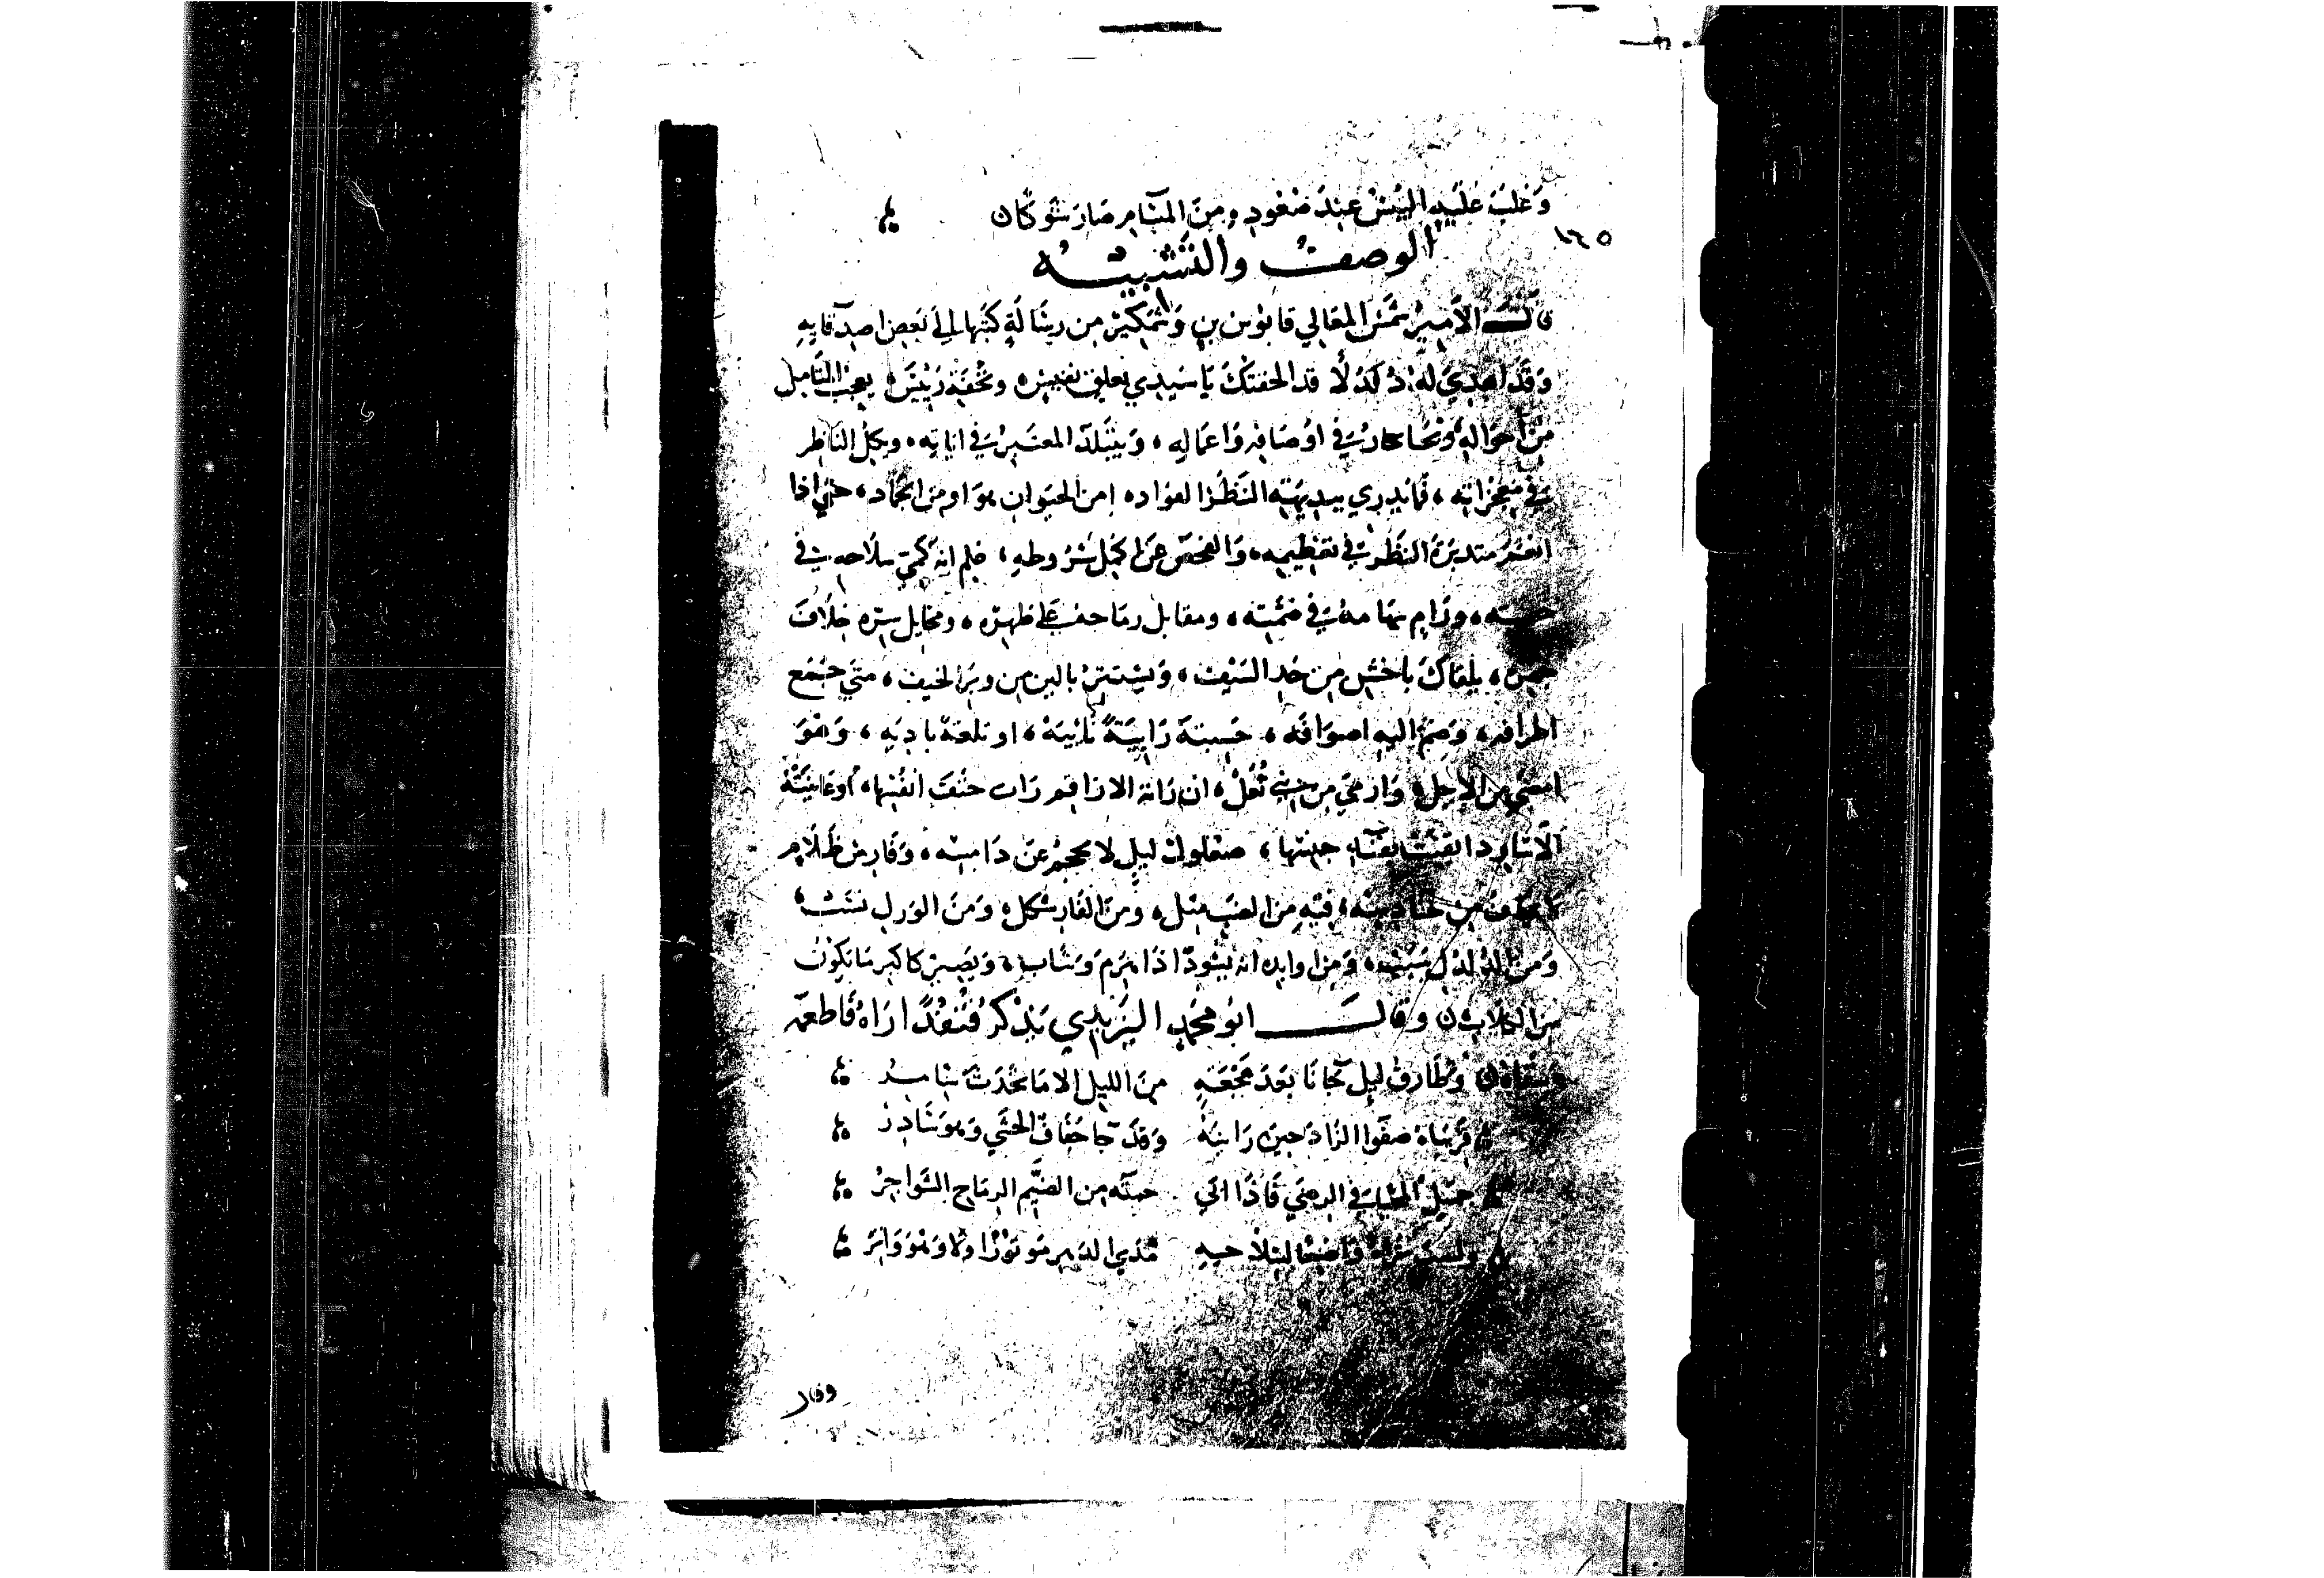 وَغلبَ عليهِ اليُبْسُ عندَ صُعُودِ ومنَ المسَامِ صَارَ شوكَان
١٦٥
الوصفُ والتشبيهُ
قالَ الأميرُ شمسُ المعَالي قابوس بن وَشمَكير من رسَالةٍ كتبَها إلى بعض اصدقايهِ
وَقد اهدي لهُ دُلدُلًا قد اتحفتكَ يَا سَيدي بعلقٍ نفيسٍ، وتُحفةٍ رئيسَةٍ، يعجبُ المتأمل
مِن احوَالهِ، وَيُحَارُ في اوْصَافهِ وَاعمَالهِ، وَيتبلدُ المعتبرُ في اياتِه، ويكلُ الناظر
في معجزاتِه، فمَا يدري ببديهةِ النظَر الفؤاد، امن الحيوان هوَ اوْ من الجمَاد، حتى اذا
انعمَ متدبرهُ النظَر في تعظيمه، وَالفحص عن اكمَل شرُوطهِ، علم انهُ كمىٌّ سلَاحه في
ورَامٍ سهَامه في ضمنِه، ومقابل رمَاحه على ظهرِه، ومخايل سرّه خِلَافَ
يلقاكَ باخشن من حَدِ السَيفِ، وَيستترُ بالين من وبَر الخيف، متى جَمَع
اطرافه، وَضمّ اليهِ اصوَافه، حَسبتهُ رَابيَةً نَابيَة، او تلعَة بادِيَه، وَهُوَ
امضَى من الاجل، وَارمَى من بني ثُعَل، ان رَاته الاراقم رَات حتفَ انفُسِها، أوعَايَنَتْهُ
الاساود ايقنتْ بفنَآءِ جنسهَا، صعلوك ليلٍ لا يحجمُ عن دَامسِه، وَفارس ظَلَامٍ
من حنَادسِه، فيهِ من الضبّ مثل، وَمن الفار شكل، وَمنَ الورل نسَب،
وَمن الدلدل سَبَب، وَمن اوابده انه يسْودّ اذا هَرِم وَشاب، وَيصير كاكبر مَا يكُونُ
من الكلاب ن وقالَ ابو محمد اليزيدي يذكر قُنفُذًا رَاهُ فاطعمَه
وَسقَاه ن وطَارق ليلٍ جَانَا بعَدَ هَجْعَةٍ منَ الليل الا مَا تحَدثَ سَامِرُ
قرينَاهُ صفوَ الزَادِ حينَ رَايتهُ وَقد جَا خفّاقَ الحَشي وَهو سَادِرُ
جميل المحيّا في الرضي فاذَا ابَى حمتَه من الضيم الرمَاح الشواجِرُ
ولَستَ تراهُ وَاضعًا لسِلَاحهِ مَدَى الدَهر موتُوْرًا ولا وَهوَ وَاترُ
وقال